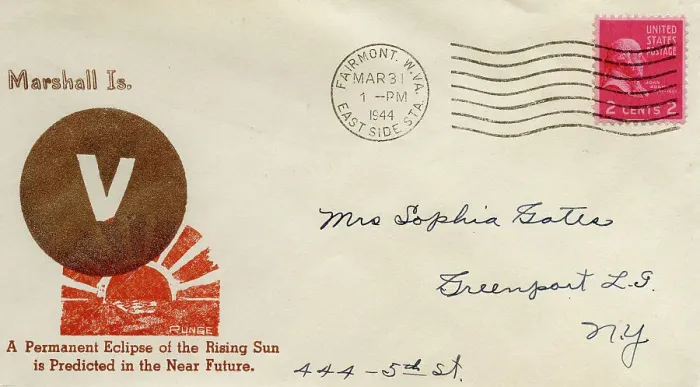 Marshall Is.
V
RUNGE
A Permanent Eclipse of the Rising Sun
is Predicted in the Near Future.
FAIRMONT, W.VA.
MAR 31
1 -PM
1944
EAST SIDE STA.
UNITED
STATES
POSTAGE
JOHN ADAMS
2 CENTS 2
Mrs Sophia Gates
Greenport L.I.
N.Y
444 - 5th St.